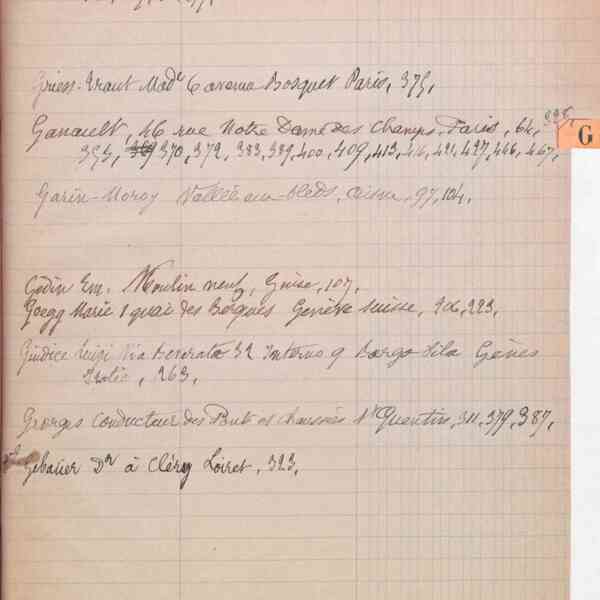 Griess-Traut Made 6 avenue Bosquet Paris, 375,
Ganault, 46 rue Notre Dame des Champs, Paris, 64,
G
353, 369 370, 372, 383, 389, 400, 409, 413, 416, 421, 427, 446, 467,
Garin-Moroy Vallée aux-bleds, Aisne, 97, 104,
Godin Em. Moulin neuf, Guise, 107,
Goegg Marie 1 quai des Bergues Genève Suisse, 206, 223,
Giudice Luigi Via Bexerata 32 Interno 9 Borgo Pila Gènes
Italie, 263,
Georges Conducteur des Ponts et chaussées St Quentin, 311, 379, 387,
Gebaüer Dr à Cléry Loiret, 323,